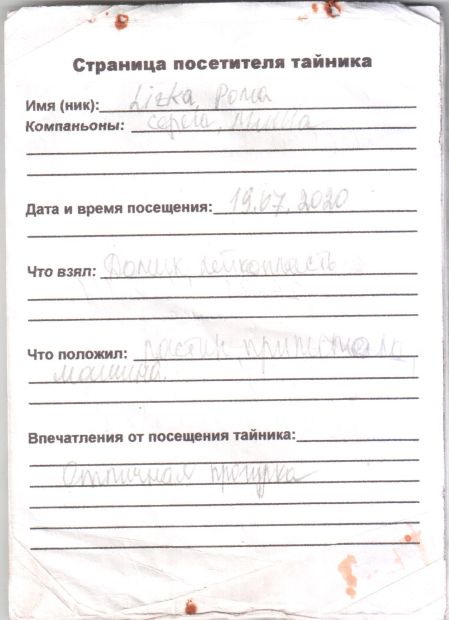 Страница посетителя тайника
Имя (ник): Lizka, Рома
Компаньоны: Серёга,
Дата и время посещения: 19.07.2020
Что взял: Домик, лейкопласть
Что положил: ластик,
машина.
Впечатления от посещения тайника:
Отличная прогулка